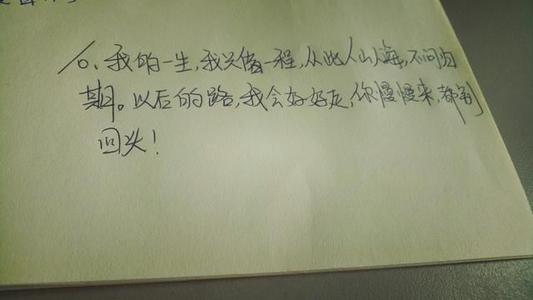 10、我的一生,我只借一程,从此人山人海,不问归
期。以后的路,我会好好走,你慢慢来,都别
回头!